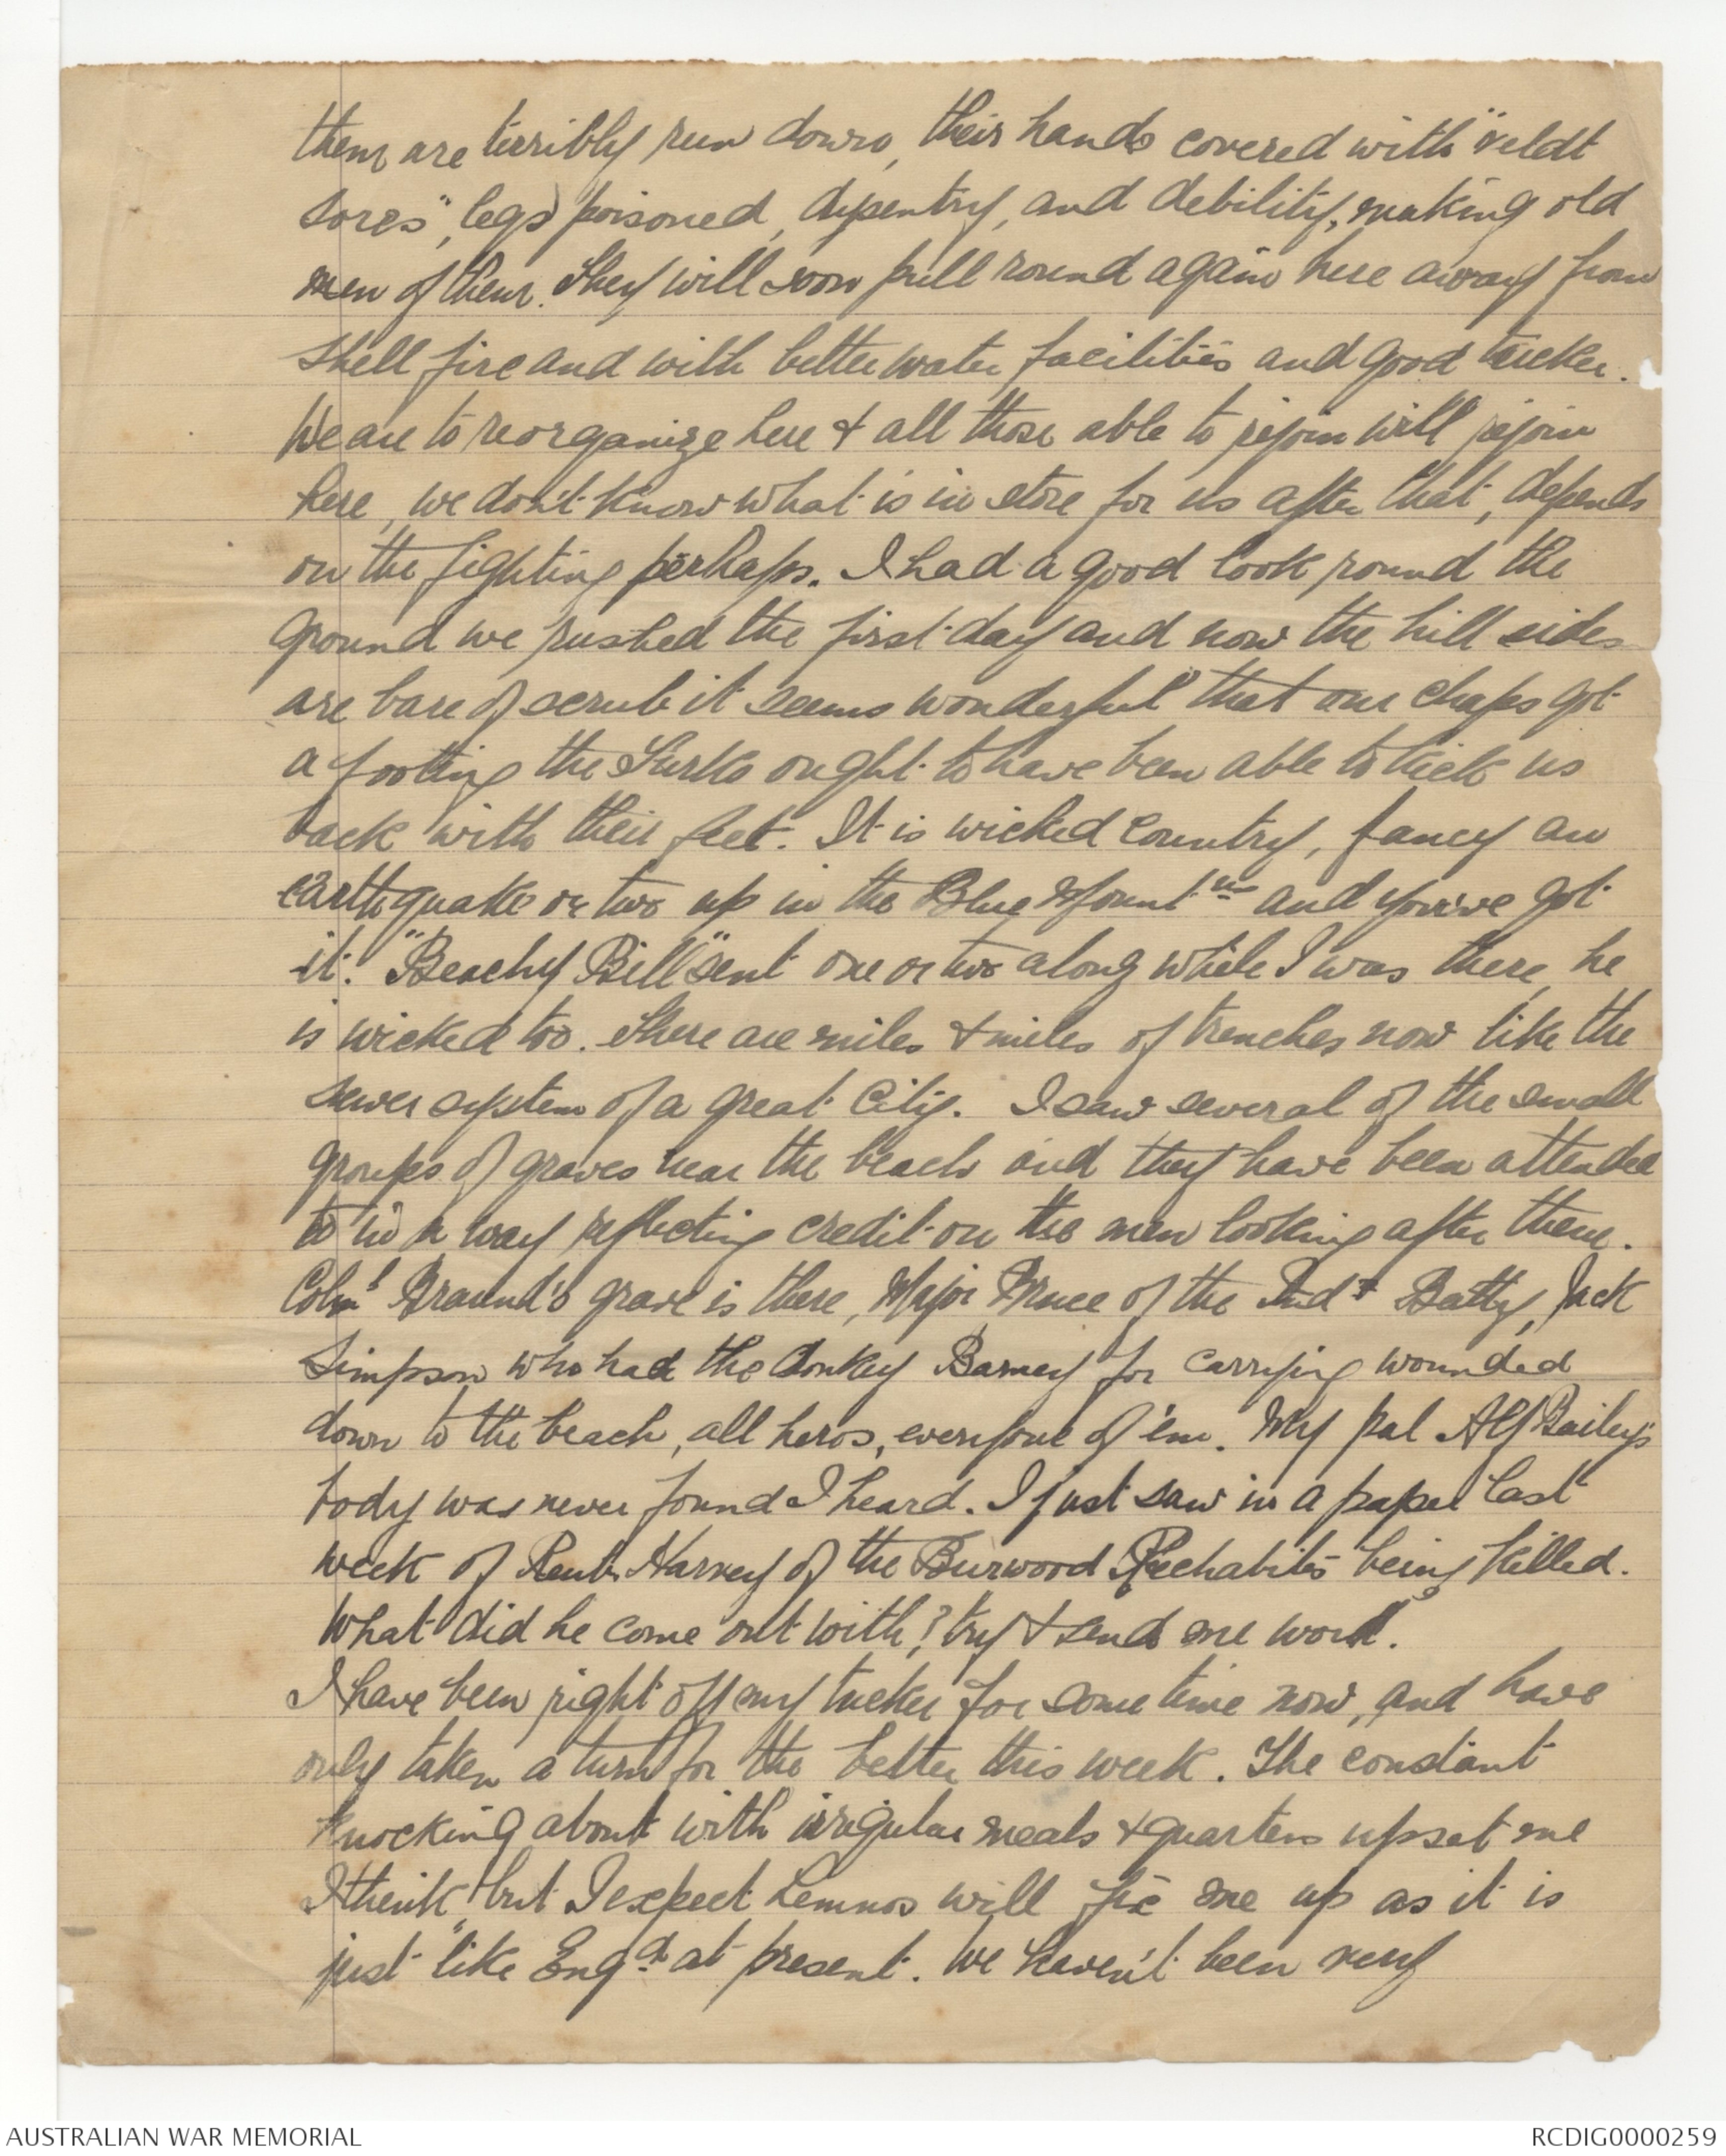 them are terribly run down, their hands covered with "veldt
sores", legs poisoned, dysentry, and debility, making old
men of them. They will soon pull round again here away from
shell fire and with better water facilities and good tucker.
We are to reorganize here & all those able to rejoin will rejoin
here, we don't know what is in store for us after that, depends
on the fighting perhaps. I had a good look round the
ground we rushed the first day and now the hill sides
are bare of scrub it seems wonderful that our chaps got
a footing the Turks ought to have been able to kick us
back with their feet. It is wicked country, fancy an
earthquake or two up in the Blue Mountns and you've got
it. "Beachy Bill" sent one or two along while I was there, he
is wicked too. There are miles & miles of trenches now like the
sewer system of a great City. I saw several of the small
groups of graves near the beach and they have been attended
to in a way reflecting credit on the men looking after them.
Colnl Braund's grave is there, Major Bruce of the Indn Batty, Jack
Simpson who had the donkey Barney for carrying wounded
down to the beach, all heros, everyone of 'em. My pal Alf Bailey's
body was never found I heard. I just saw in a paper last
week of Reub. Harvey of the Burwood Rechabites being killed.
What did he come out with? try & send me word.
I have been right off my tucker for some time now, and have
only taken a turn for the better this week. The constant
knocking about with irregular meals & quarters upset me
I think but I expect Lemnos will fix me up as it is
just like Engd at present. We haven't been very
AUSTRALIAN WAR MEMORIAL
RCDIG0000259